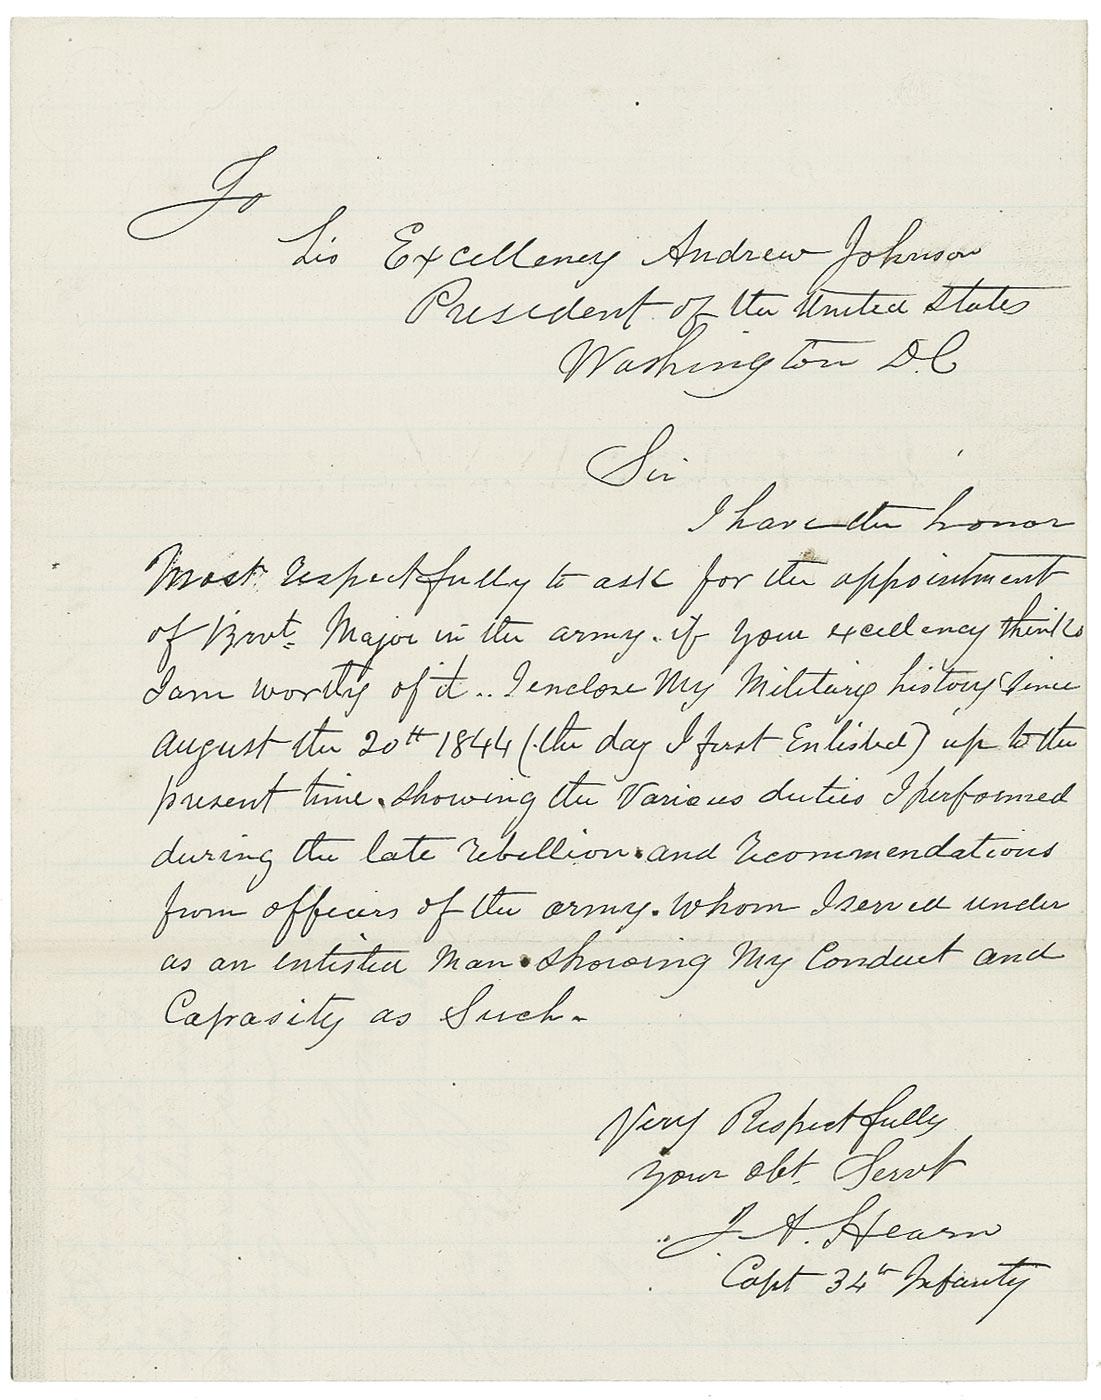 To
his Excellency Andrew Johnson
President of the United States
Washington D.C
Sir
I have the honor
Most respectfully to ask for the appointment
of Brvt. Major in the army. if your excellency thinks
I am worthy of it.. I enclose My Military history since
august the 20th 1844 (the day I first Enlisted) up to the
present time. showing the Various duties I performed
during the late rebellion. and Recommendations
from officers of the army. whom I served under
as an enlisted Man. showing My Conduct and
Capasity as Such.
Very Respectfully
your obt. Servt
J. A. Hearn
Capt 34th Infantry